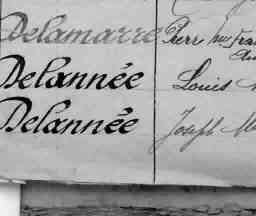 Delamarre Pierr
Delannée Louis
Delannée Joseph